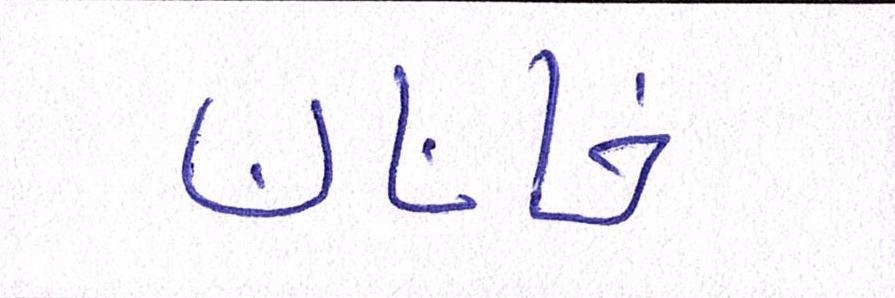 خانان